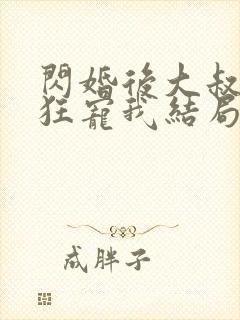 閃婚後大叔
狂寵我結局
成胖子